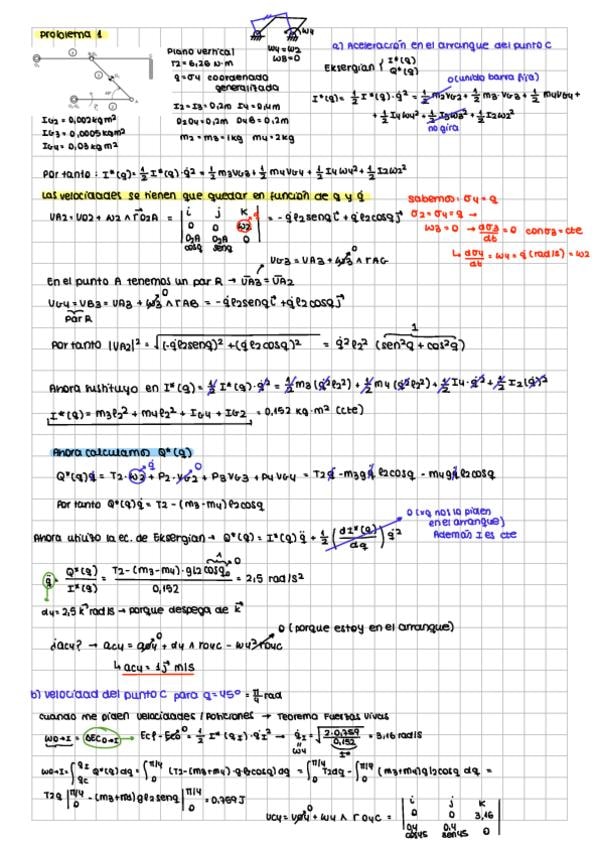 Problema 1
Plano vertical
T2 = 6,26 N·m
q = σ4 coordenada
generalizada
I2 = I3 = 0,2m I4 = 0,4m
O2O4 = 0,2m O4B = 0,2m
m2 = m3 = 1kg m4 = 2kg
IG2 = 0,002 kg m²
IG3 = 0,0005 kg m²
IG4 = 0,03 kg m²
w4
w4 = w2
w3 = 0
a) Aceleración en el arranque del punto C
Eksergian { I*(q)
Q*(q)
0 (unido barra fija)
I*(q) = 1/2 I*(q)·q̇² = 1/2 m2 VG2 + 1/2 m3·VG3 + 1/2 m4 VG4 +
+ 1/2 I4 w4² + 1/2 I3 w3² + 1/2 I2 w2²
no gira
Por tanto : I*(q) = 1/2 I*(q)·q̇² = 1/2 m3 VG3 + 1/2 m4 VG4 + 1/2 I4 w4² + 1/2 I2 w2²
Las velocidades se tienen que quedar en función de q y q̇
sabemos: σ4 = q
σ2 = σ4 = q →
w3 = 0 → dσ3/dt = 0 con σ3 = cte
↳ dσ4/dt = w4 = q̇ (rad/s) = w2
VA2 = VO2 + w2 ∧ rO2A = | i j k
0 0 w2
O2A cosq O2A senq 0 | = -q̇ l2 senq i + q̇ l2 cosq j
VG3 = VA3 + w3 ∧ rAG
En el punto A tenemos un par R → VA3 = VA2
VG4 = VB3 = VA3 + w3 ∧ rAB = -q̇ l2 senq i + q̇ l2 cosq j
par R
Por tanto |VA2|² = √(-q̇ l2 senq)² + (q̇ l2 cosq)² = q̇² l2² (sen²q + cos²q)
1
Ahora sustituyo en I*(q) = 1/2 I*(q)·q̇² = 1/2 m3 (q̇² l2²) + 1/2 m4 (q̇² l2²) + 1/2 I4·q̇² + 1/2 I2 (q̇)²
I*(q) = m3 l2² + m4 l2² + IG4 + IG2 = 0,152 kg·m² (cte)
Ahora calculamos Q*(q)
Q*(q) q̇ = T2·w2 + P2·VG2 + P3 VG3 + P4 VG4 = T2 q̇ - m3 g q̇ l2 cosq - m4 g q̇ l2 cosq
Por tanto Q*(q) q̇ = T2 - (m3-m4) g l2 cosq
0 (xq nos lo piden
en el arranque)
Además I es cte
Ahora utilizo la ec. de Eksergian → Q*(q) = I*(q) q̈ + 1/2 (dI*(q)/dq) q̇²
q̈ = Q*(q)/I*(q) = T2 - (m3-m4)·g l2 cosq0 / 0,152 = 2,5 rad/s²
α4 = 2,5 k rad/s → porque despega de k
0 (porque estoy en el arranque)
¿aC4? → aC4 = aO4 + α4 ∧ rO4C - w4² rO4C
↳ aC4 = 1 j m/s
b) velocidad del punto C para q = 45° = π/4 rad
cuando me piden velocidades / posiciones → Teorema Fuerzas Vivas
W0→I = ΔEC0→I → EcF - Ec0 = 1/2 I*(qI)·q̇I² → q̇I = √(2·0,759/0,152) = 3,16 rad/s
w4
I*
W0→I = ∫ Q*(q) dq = ∫ (T2 - (m3+m4)·g l2 cosq) dq = ∫ T2 dq - ∫ (m3+m4) g l2 cosq dq =
T2q |0 π/4 - (m3+m4) g l2 senq |0 π/4 = 0,759 J
VC4 = VO4 + w4 ∧ rO4C = | i j k
0 0 3,16
0,4 cos45 0,4 sen45 0 |